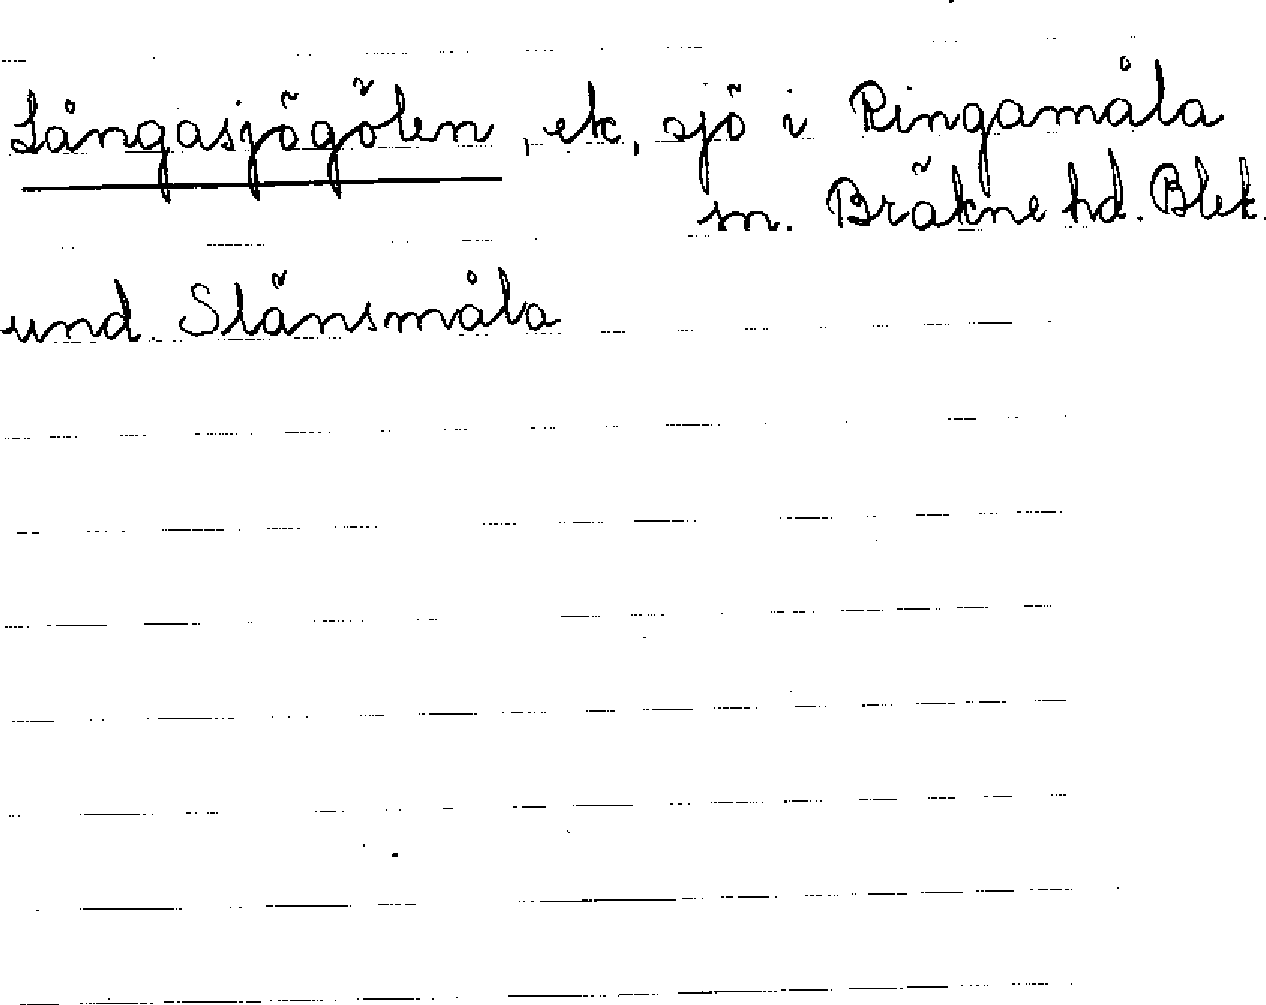 Långasjögölen, ek, sjö i Ringamåla
sn. Bräkne hd. Blek.
und. Slänsmåla